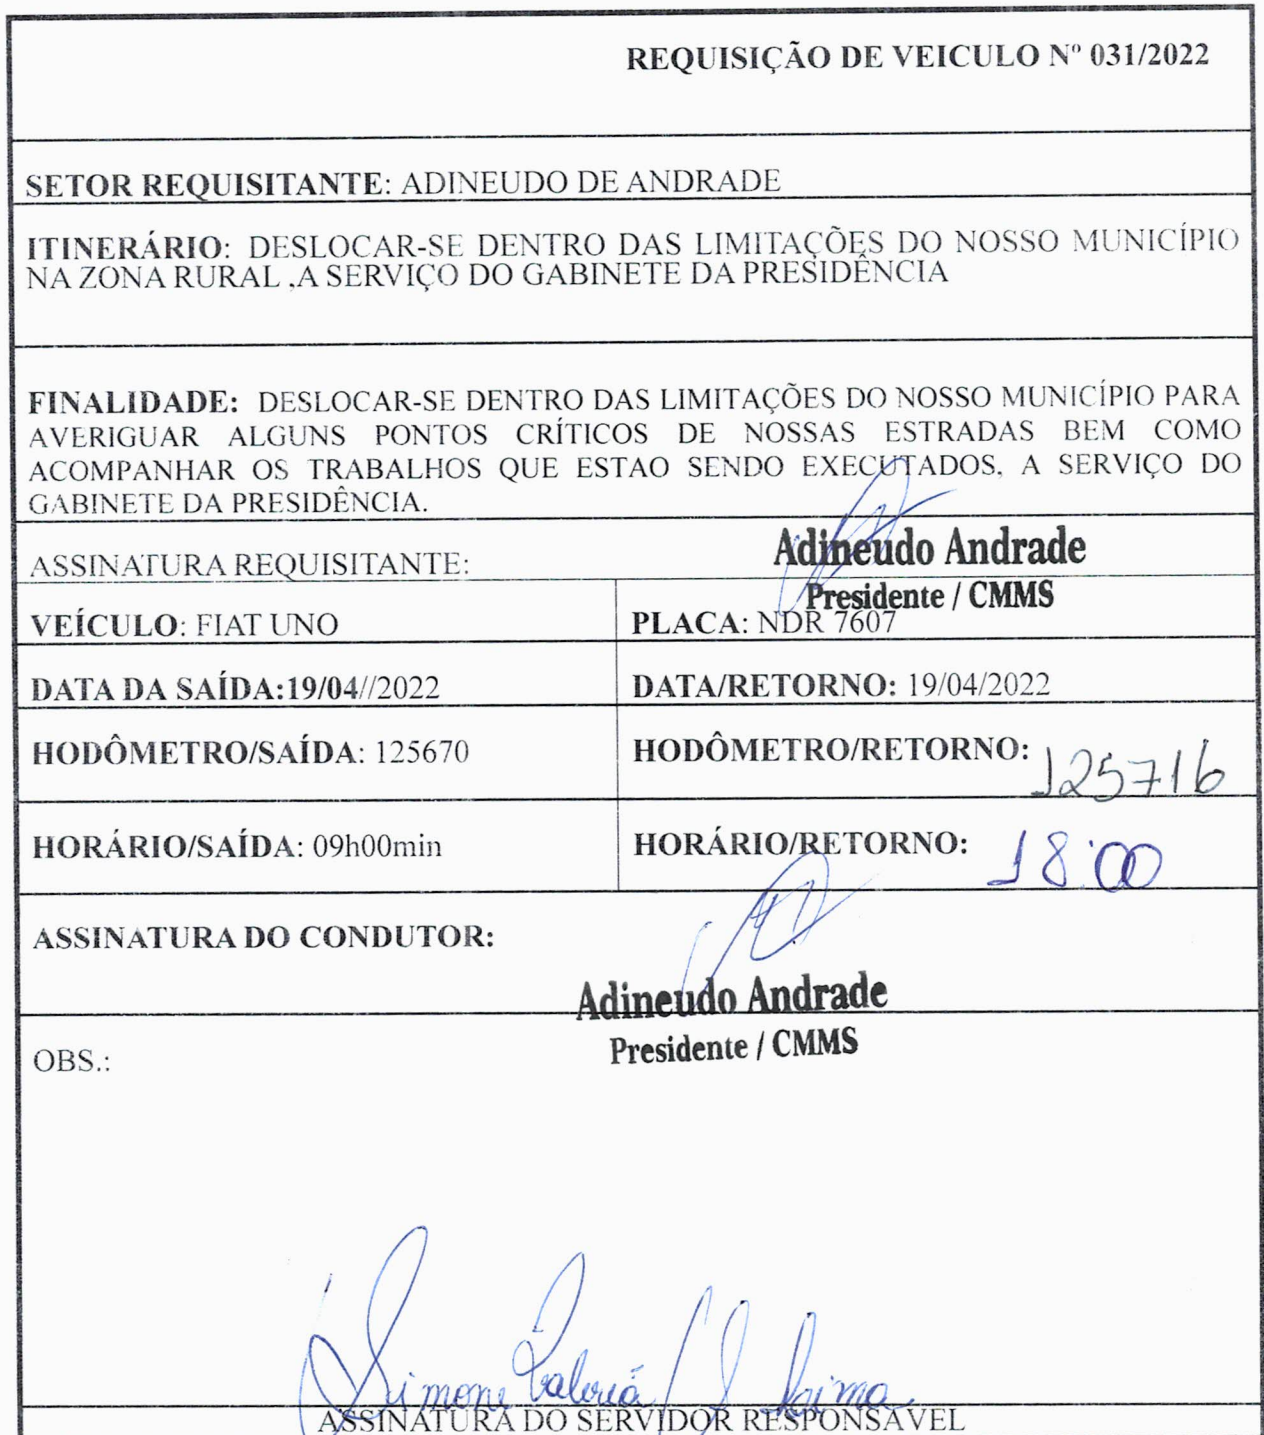 REQUISIÇÃO DE VEICULO Nº 031/2022
SETOR REQUISITANTE: ADINEUDO DE ANDRADE
ITINERÁRIO: DESLOCAR-SE DENTRO DAS LIMITAÇÕES DO NOSSO MUNICÍPIO
NA ZONA RURAL ,A SERVIÇO DO GABINETE DA PRESIDÊNCIA
FINALIDADE: DESLOCAR-SE DENTRO DAS LIMITAÇÕES DO NOSSO MUNICÍPIO PARA
AVERIGUAR ALGUNS PONTOS CRÍTICOS DE NOSSAS ESTRADAS BEM COMO
ACOMPANHAR OS TRABALHOS QUE ESTAO SENDO EXECUTADOS, A SERVIÇO DO
GABINETE DA PRESIDÊNCIA.
ASSINATURA REQUISITANTE: Adineudo Andrade
Presidente / CMMS
VEÍCULO: FIAT UNO PLACA: NDR 7607
DATA DA SAÍDA:19/04//2022 DATA/RETORNO: 19/04/2022
HODÔMETRO/SAÍDA: 125670 HODÔMETRO/RETORNO: 125716
HORÁRIO/SAÍDA: 09h00min HORÁRIO/RETORNO: 18:00
ASSINATURA DO CONDUTOR:
Adineudo Andrade
Presidente / CMMS
OBS.:
Simone
ASSINATURA DO SERVIDOR RESPONSAVEL